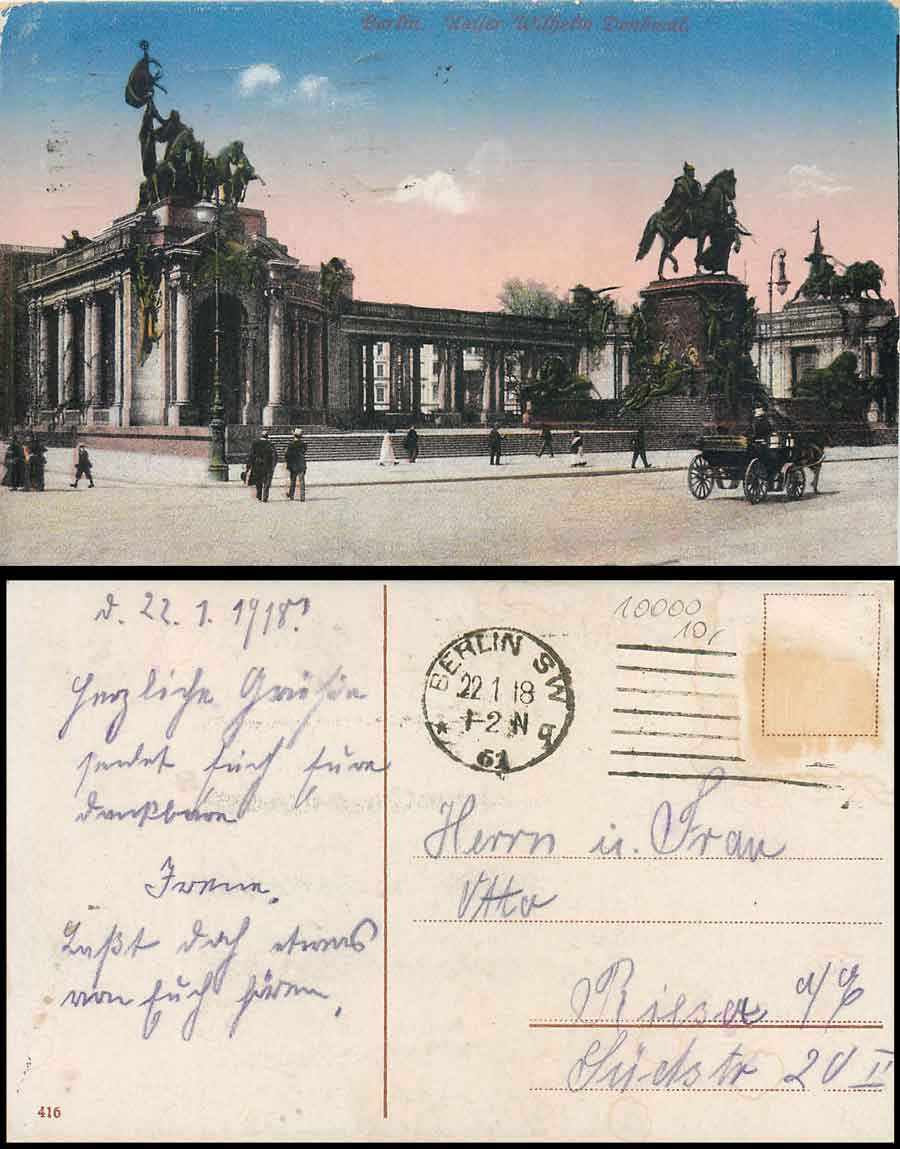 Berlin. Kaiser Wilhelm Denkmal.
d. 22. 1. 1918.
Herzliche Grüße
sendet Euch Eure
dankbare
Irene.
Laßt doch etwas
von Euch hören.
416
BERLIN SW
22.1 18
1-2 N
* 61 q
10000
10,
Herrn u. Frau
Otto
Riesa a/E
Südstr 20 II